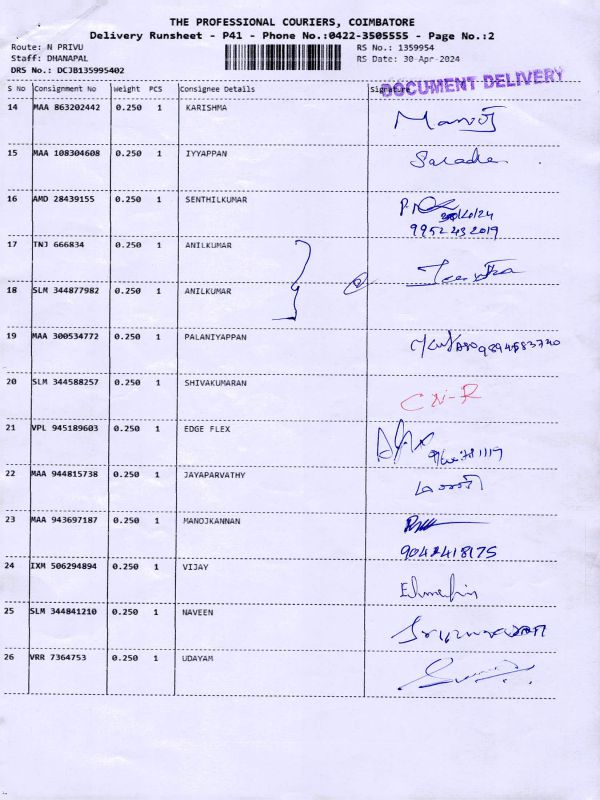 THE PROFESSIONAL COURIERS, COIMBATORE
Delivery Runsheet - P41 - Phone No.:0422-3505555 - Page No.:2
Route: N PRIVU RS No.: 1359954
Staff: DHANAPAL RS Date: 30-Apr-2024
DRS No.: DCJB135995402
DOCUMENT DELIVERY
S No Consignment No Weight PCS Consignee Details Signature
14 MAA 863202442 0.250 1 KARISHMA Manoj
15 MAA 108304608 0.250 1 IYYAPPAN Sarada
16 AMD 28439155 0.250 1 SENTHILKUMAR 30/4/24
9952432019
17 TNJ 666834 0.250 1 ANILKUMAR
18 SLM 344877982 0.250 1 ANILKUMAR
19 MAA 300534772 0.250 1 PALANIYAPPAN
20 SLM 344588257 0.250 1 SHIVAKUMARAN CN-R
21 VPL 945189603 0.250 1 EDGE FLEX
22 MAA 944815738 0.250 1 JAYAPARVATHY
23 MAA 943697187 0.250 1 MANOJKANNAN
24 IXM 506294894 0.250 1 VIJAY
25 SLM 344841210 0.250 1 NAVEEN
26 VRR 7364753 0.250 1 UDAYAM